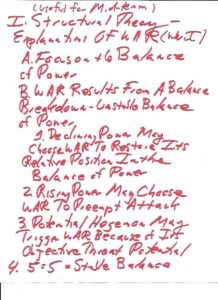 (Useful for Midterm)
I. Structural Theory -
Explanation Of WAR (WWI)
A. Focus on the Balance
of Power
B. WAR Results From A Balance
Breakdown - Unstable Balance
of Power
1. Declining Power May
Choose WAR To Restore Its
Relative Position In the
Balance of Power
2. Rising Power May Choose
WAR To Preempt Attack
3. Potential Hegemon May
Trigger WAR Because of Its
Objective Threat Potential
4. 5:5 = Stable Balance